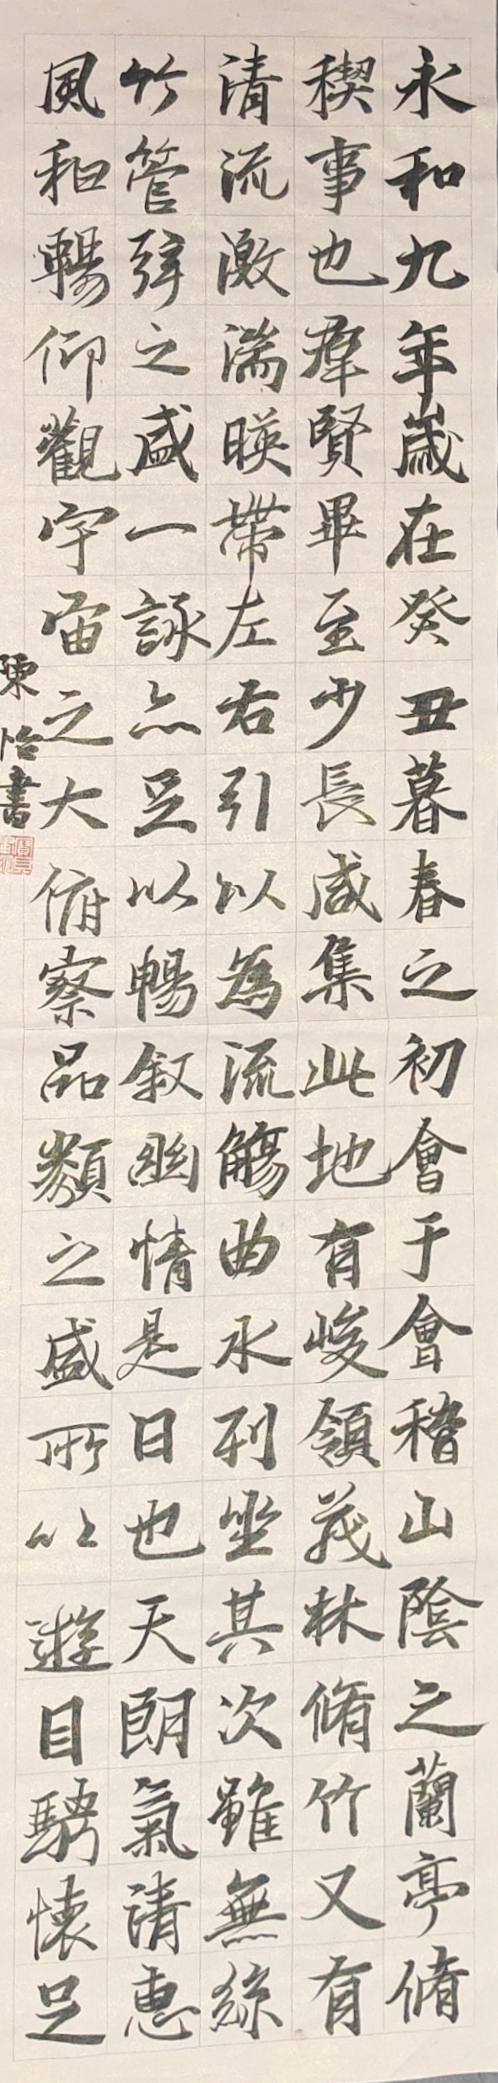 永和九年歲在癸丑暮春之初會于會稽山陰之蘭亭脩
稧事也羣賢畢至少長咸集此地有峻領茂林脩竹又有
清流激湍暎帶左右引以為流觴曲水列坐其次雖無絲
竹管弦之盛一詠一觴亦足以暢叙幽情是日也天朗氣清惠
風和暢仰觀宇宙之大俯察品類之盛所以遊目騁懷足
陳怡書